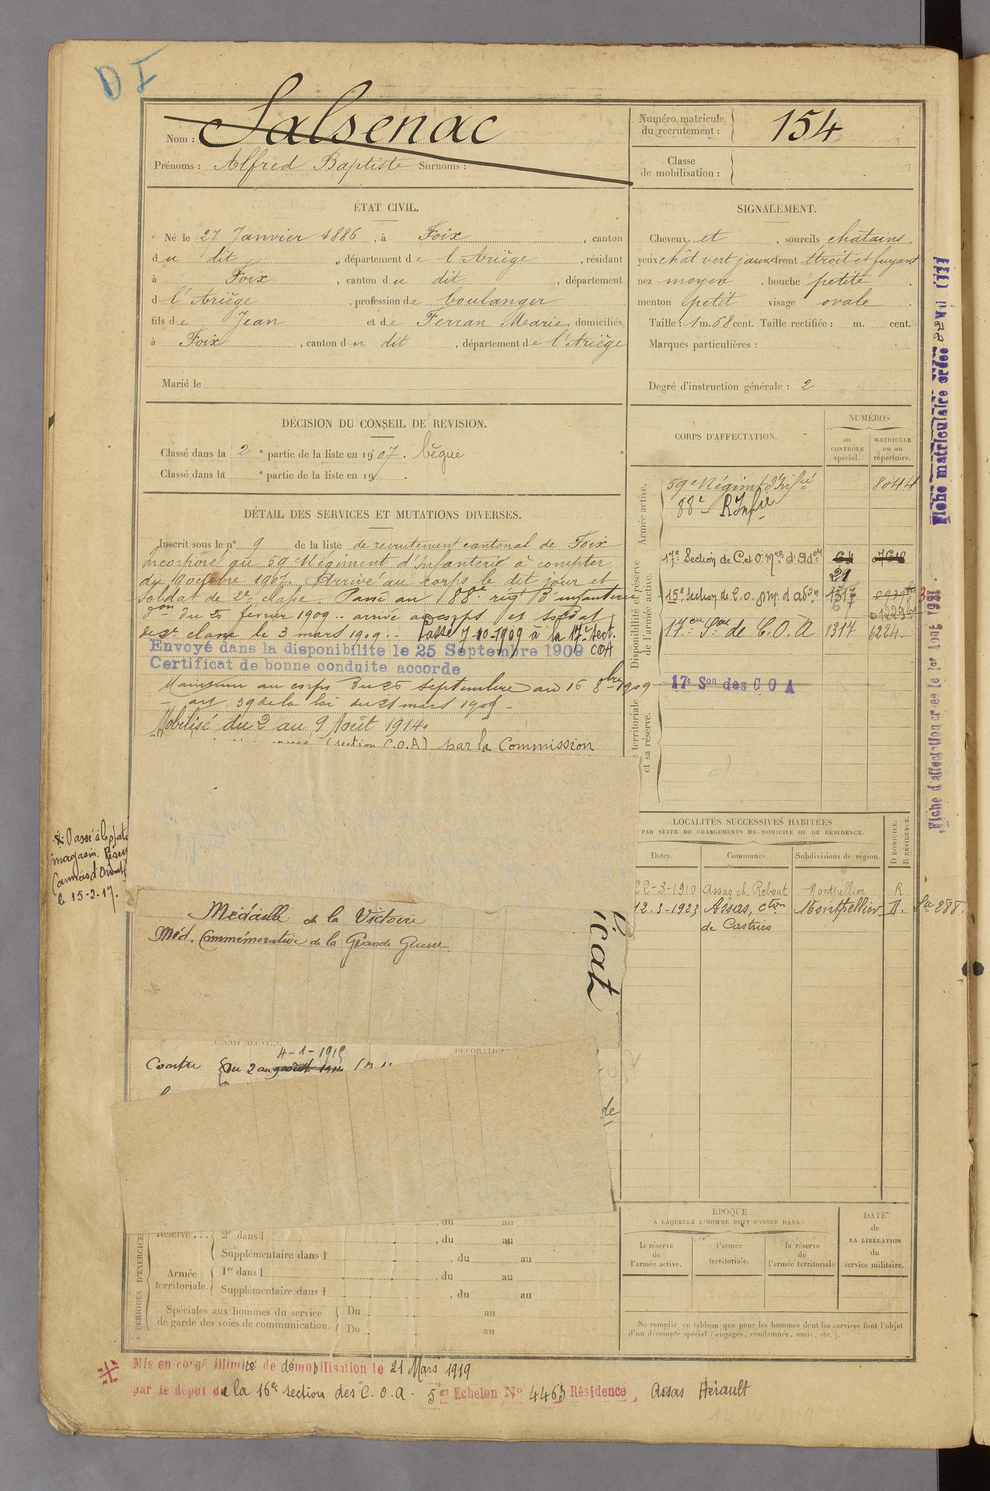 D I
Nom : Salsenac
Prénoms : Alfred Baptiste Surnoms :
Numéro matricule du recrutement : 154
Classe de mobilisation :
ÉTAT CIVIL.
Né le 27 Janvier 1886, à Foix, canton
du dit, département de l'Ariège, résidant
à Foix, canton du dit, département
d l'Ariège, profession de boulanger
fils de Jean et de Ferran Marie, domiciliés
à Foix, canton du dit, département de l'Ariège
Marié le
SIGNALEMENT.
Cheveux et, sourcils chatains.
yeux chât vert jaune front étroit et fuyant
nez moyen, bouche petite.
menton petit visage ovale
Taille : 1 m. 68 cent. Taille rectifiée : m. cent.
Marques particulières :
Degré d'instruction générale : 2
DÉCISION DU CONSEIL DE REVISION.
Classé dans la 2e partie de la liste en 1907. bègue
Classé dans la e partie de la liste en 19 .
DÉTAIL DES SERVICES ET MUTATIONS DIVERSES.
Inscrit sous le n° 9 de la liste de recrutement cantonal de Foix
Incorporé au 59e Régiment d'Infanterie à compter
du 9 octobre 1907. Arrivé au corps le dit jour et
soldat de 2e classe. Passé au 88e régt d'infanterie
du 25 février 1909 .. arrivé au corps et soldat
de 2e classe le 3 mars 1909 .. Passé 7-10-1909 à la 17e Sect.
COA
Envoyé dans la disponibilité le 25 Septembre 1909
Certificat de bonne conduite accordé
Maintenu au corps du 25 septembre au 16 8bre 1909
- art. 39 de la loi du 21 mars 1905 -
Mobilisé du 2 au 9 Août 1914.
(section C.O.A) par la Commission
CORPS D'AFFECTATION.
NUMÉROS
au CONTRÔLE spécial.
MATRICULE ou au répertoire.
Armée active.
59e Régiment d'Infrie 8044
88e R Infie
Disponibilité et réserve de l'armée active.
17e Section de C. et O. 64
21
15e Section de C.O. 1317
17e Son de C.O.A 1317 6224
17e Son des C O A
territoriale et sa réserve.
LOCALITÉS SUCCESSIVES HABITÉES
PAR SUITE DE CHANGEMENTS DE DOMICILE OU DE RÉSIDENCE.
Dates. Communes. Subdivisions de région. D DOMICILE. R RÉSIDENCE.
22-3-1910 Assas ch. Rebout Montpellier R
12-3-1923 Assas, cton de Castries Montpellier D.
Médaille de la Victoire
Méd. Commémorative de la Grande Guerre
icat
4-1-1919
Contre du 2 au
de
Réserve . . . 2e dans l , du au
Supplémentaire dans l , du au
Armée territoriale. 1re dans l , du au
Supplémentaire dans l , du au
Spéciales aux hommes du service de garde des voies de communication. Du au
Du au
PÉRIODES D'EXERCICES
ÉPOQUE
A LAQUELLE L'HOMME DOIT PASSER DANS :
la réserve de l'armée active.
l'armée territoriale.
la réserve de l'armée territoriale
DATE de LA LIBÉRATION du service militaire.
Ne remplir ce tableau que pour les hommes dont les services font l'objet
d'un décompte spécial (engagés, condamnés, omis, etc.).
Mis en congé illimité de démobilisation le 21 Mars 1919
par le dépôt de la 16e section des C.O.A. 5e Echelon N° 4463 Résidence Assas Hérault
Fiche matriculaire créée
Fiche d'affectation créée le 1er Aout 1931.
magasin
Armée d'Orient
le 15-2-17.